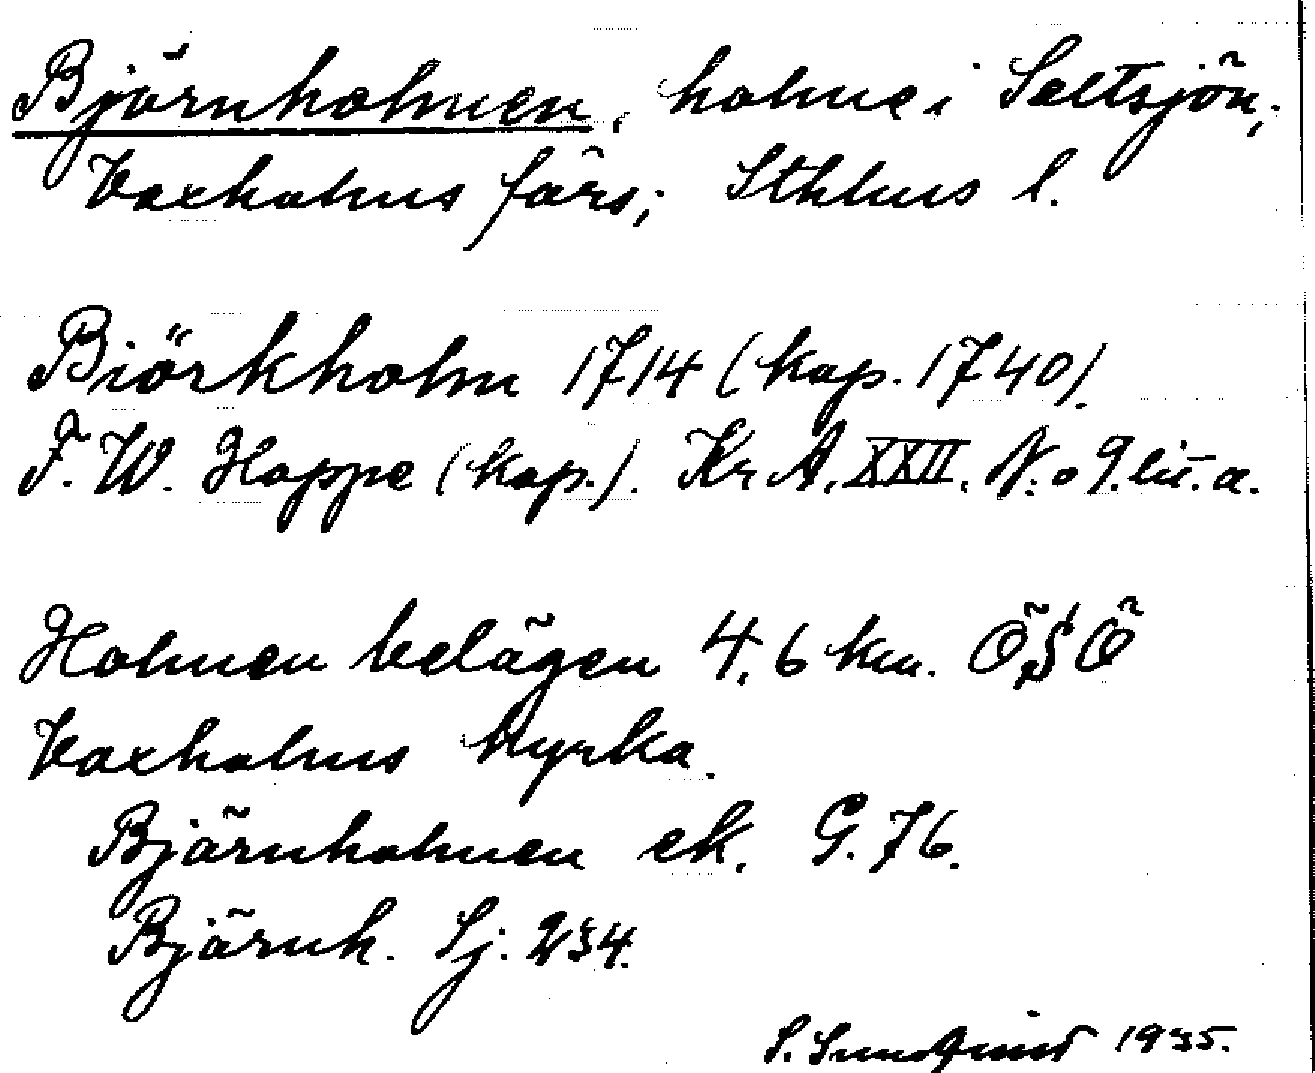 Björnholmen, holme i Saltsjön,
Vaxholms förs; Sthlms l.
Biörkholm 1714 (kop. 1740).
F. W. Hoppe (kop.). Kr A. XXII. N:o 9. lit. a.
Holmen belägen 4,6 km. ÖSÖ
Vaxholms kyrka.
Björnholmen ek. G. 76.
Björnh. Sj: 234.
S. Sundqvist 1935.